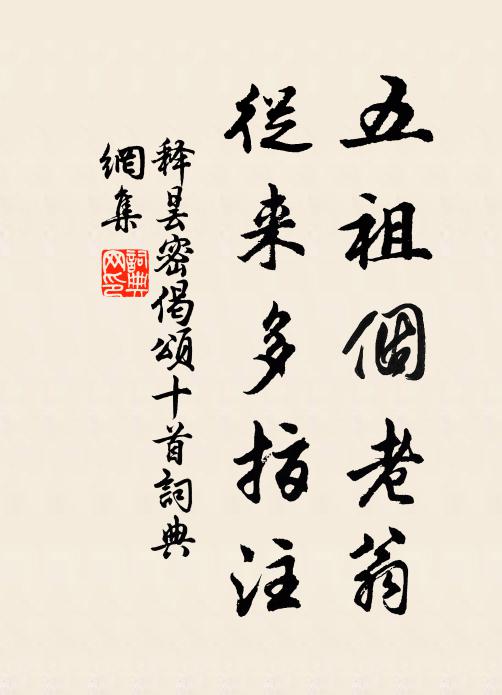 五祖個老翁
從来多指注
释昙密偈頌十首詞典
網集
詞典
网印